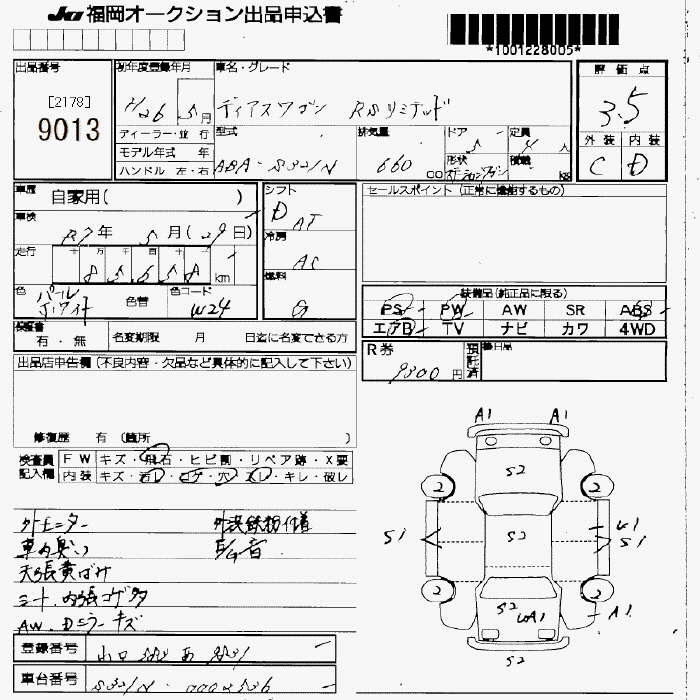 JU 福岡オークション出品申込書
*1001228005*
出品番号
[2178]
9013
初年度登録年月
H26 5月
ディーラー・並行
モデル年式 年
ハンドル 左・右
車名・グレード
ディアスワゴン RSリミテッド
型式
ABA-S321N
排気量
660
cc
ドア
5
定員
4人
形状
ステーションワゴン
積載
kg
評価点
3.5
外装 内装
C D
車歴
自家用( )
車検
R7年5月(29日)
走行
十 万 千 百 十 一
km
色
パール
ホワイト
色替
色コード
W24
シフト
D AT
冷房
AC
燃料
G
セールスポイント (正常に機能するもの)
装備品(純正品に限る)
PS PW AW SR ABS
エアB TV ナビ カワ 4WD
保証書
有・無
名変期限 月 日迄に名変できる方
R券
9300円
預託済
後日品
出品店申告欄(不良内容・欠品など具体的に記入して下さい)
修復歴 有 (箇所 )
検査員記入欄
FW キズ・飛石・ヒビ割・リペア跡・X要
内装 キズ・汚レ・コゲ・穴・スレ・キレ・破レ
外モニター 外装鉄粉付着
車内臭い
天張黄ばみ
シート、内張コゲ穴
AW、Dミラーキズ
登録番号
車台番号
A1 A1
S2
2 2
S1 S2 U1
S1
2 2
S2 A1
S2